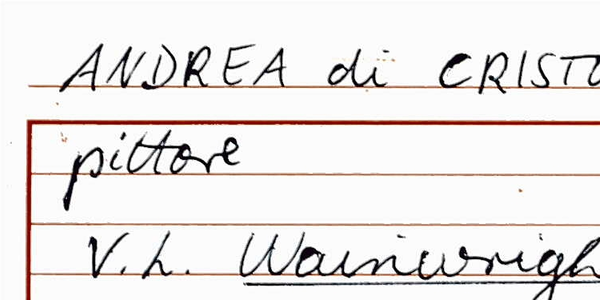 ANDREA di CRISTO
pittore
V. L. Wainwrigh